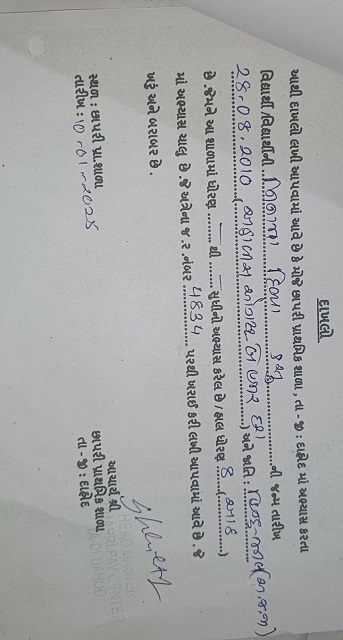 દાખલો
આથી દાખલો લખી આપવામાં આવે છે કે મોજે છાપરી પ્રાથમિક શાળા, તા - જી : દાહોદ માં અભ્યાસ કરતા
વિદ્યાર્થી/વિદ્યાર્થીની ની જન્મ તારીખ
28.08.2010 (અઠ્ઠાવીસ ઓગસ્ટ બે હજાર દસ) અને જાતિ : હિન્દુ-
છે. જેમને આ શાળામાં ધોરણ થી સુધીનો અભ્યાસ કરેલ છે / હાલ ધોરણ 8 (આઠ)
માં અભ્યાસ ચાલુ છે. જે અત્રેના જ.ર.નંબર 4834 પરથી ખરાઈ કરી લખી આપવામાં આવે છે. જે
ખરૂં અને બરાબર છે.
સ્થળ : છાપરી પ્રા.શાળા
તારીખ : 10-01-2025
આચાર્ય શ્રી
છાપરી પ્રાથમિક શાળા
તા - જી : દાહોદ